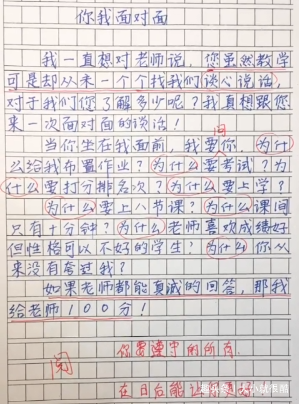 你我面对面
我一直想对老师说，您虽然教学
可是却从未一个个找我们谈心说话，
对于我们您了解多少呢？我真想跟您
来一次面对面的谈话！
问
当你坐在我面前，我要你，为什
么给我布置作业？为什么要考试？为
什么要打分排名次？为什么要上学？
为什么要上八节课？为什么课间
只有十分钟？为什么老师喜欢成绩好
但性格可以不好的学生？为什么你从
来没有夸过我？
如果老师都能真诚的回答，那我
给老师100分！
阅
你要遵守的所有，
在日后能让你更好